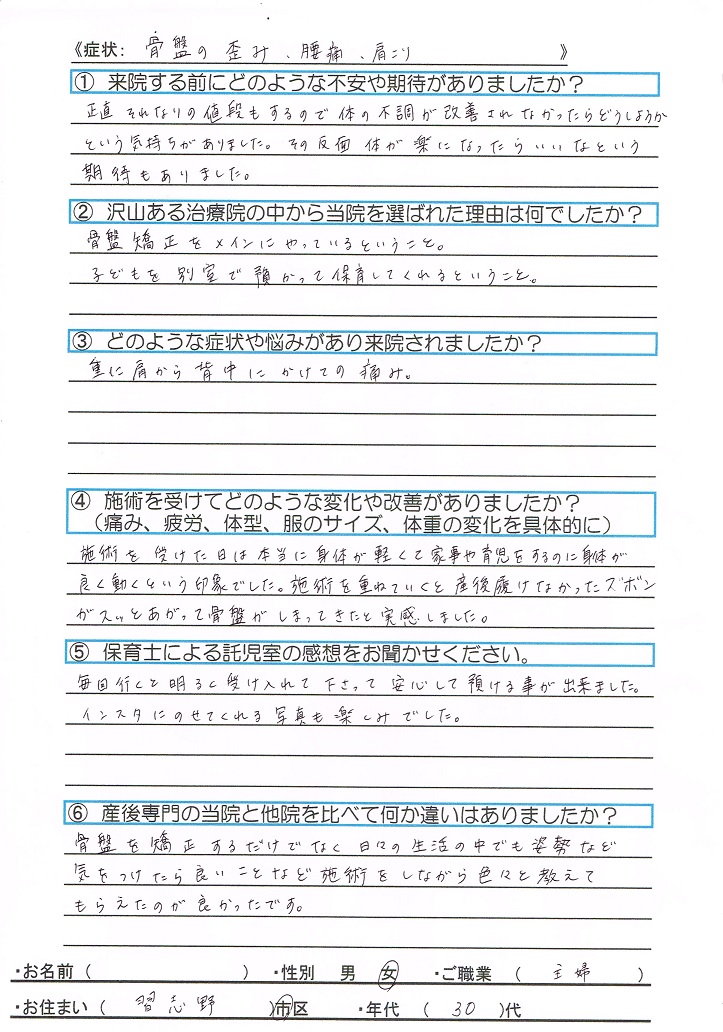 《症状: 骨盤の歪み、腰痛、肩こり 》
① 来院する前にどのような不安や期待がありましたか？
正直それなりの値段もするので体の不調が改善されなかったらどうしようか
という気持ちがありました。その反面 体が楽になったらいいなという
期待もありました。
② 沢山ある治療院の中から当院を選ばれた理由は何でしたか？
骨盤矯正をメインにやっているということ。
子どもを別室で預かって保育してくれるということ。
③ どのような症状や悩みがあり来院されましたか？
主に肩から背中にかけての痛み。
④ 施術を受けてどのような変化や改善がありましたか？
（痛み、疲労、体型、服のサイズ、体重の変化を具体的に）
施術を受けた日は本当に身体が軽くて家事や育児をするのに身体が
良く動くという印象でした。施術を重ねていくと産後履けなかったズボン
がスッとあがって骨盤がしまってきたと実感しました。
⑤ 保育士による託児室の感想をお聞かせください。
毎回行くと明るく受け入れて下さって安心して預ける事が出来ました。
インスタにのせてくれる写真も楽しみでした。
⑥ 産後専門の当院と他院を比べて何か違いはありましたか？
骨盤を矯正するだけでなく日々の生活の中でも姿勢など
気をつけたら良いことなど施術をしながら色々と教えて
もらえたのが良かったです。
・お名前（ ） ・性別 男 女 ・ご職業 （ 主婦 ）
・お住まい（ 習志野 ）市区 ・年代 （ 30 ）代